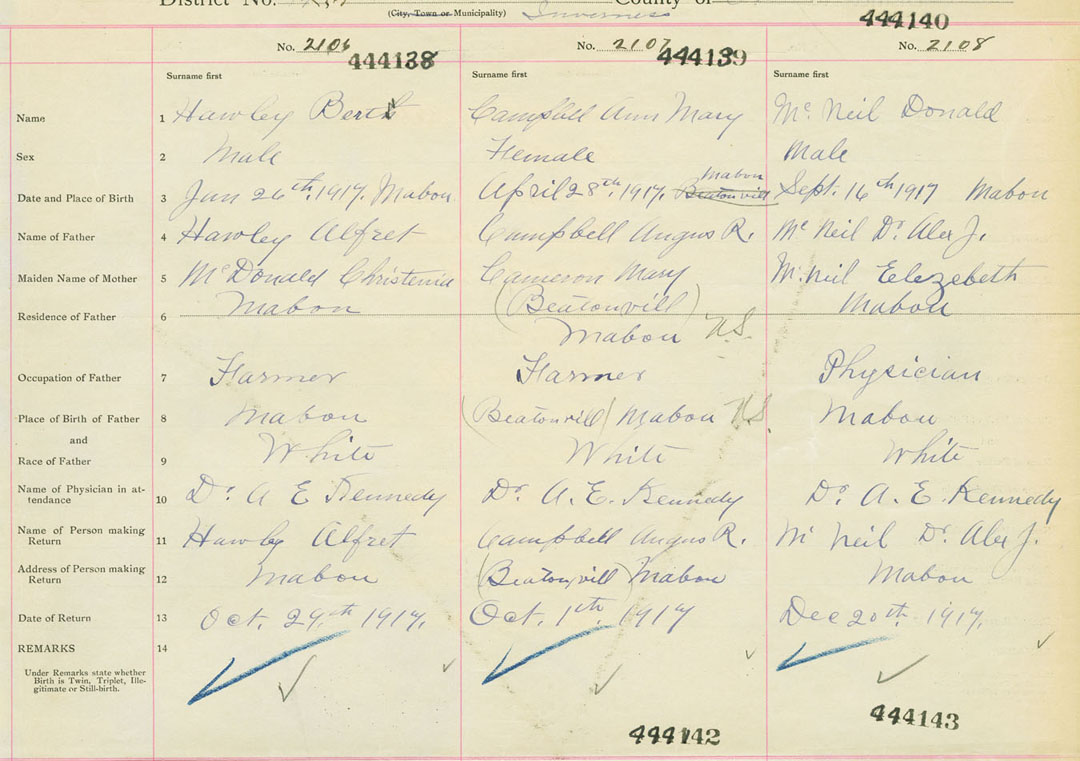 District No. County of
(City, Town or Municipality) Inverness
444140
No. 2106 444138 No. 2107 444139 No. 2108
Surname first Surname first Surname first
Name 1 Hawley Bert Campbell Ann Mary Mc Neil Donald
Sex 2 Male Female Male
Mabou
Date and Place of Birth 3 Jan 26th, 1917, Mabou April 28th, 1917, Beatonvill Sept. 16th 1917 Mabou
Name of Father 4 Hawley Alfret Campbell Angus R. Mc Neil Dr. Alex J.
Maiden Name of Mother 5 McDonald Christenia Cameron Mary McNeil Elezebeth
Residence of Father 6 Mabou (Beatonvill) Mabou
Mabou N.S.
Occupation of Father 7 Farmer Farmer Physician
Place of Birth of Father 8 Mabou (Beatonvill) Mabou N.S. Mabou
and
Race of Father 9 White White White
Name of Physician in at-
tendance 10 Dr. A E Kennedy Dr. A. E. Kennedy Dr. A. E. Kennedy
Name of Person making
Return 11 Hawley Alfret Campbell Angus R. Mc Neil Dr. Alex J.
Address of Person making
Return 12 Mabou (Beatonvill) Mabou Mabou
Date of Return 13 Oct. 29th 1917. Oct. 1th, 1917 Dec 20th. 1917.
REMARKS 14
Under Remarks state whether
Birth is Twin, Triplet, Ille-
gitimate or Still-birth.
444142 444143